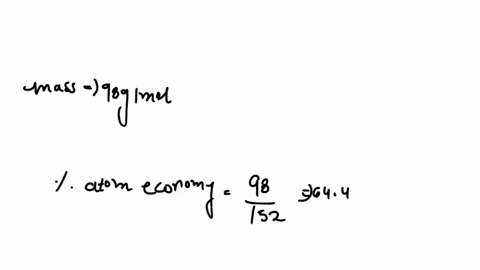 mass => 98g/mol
% atom economy = 98/152 => 64.4